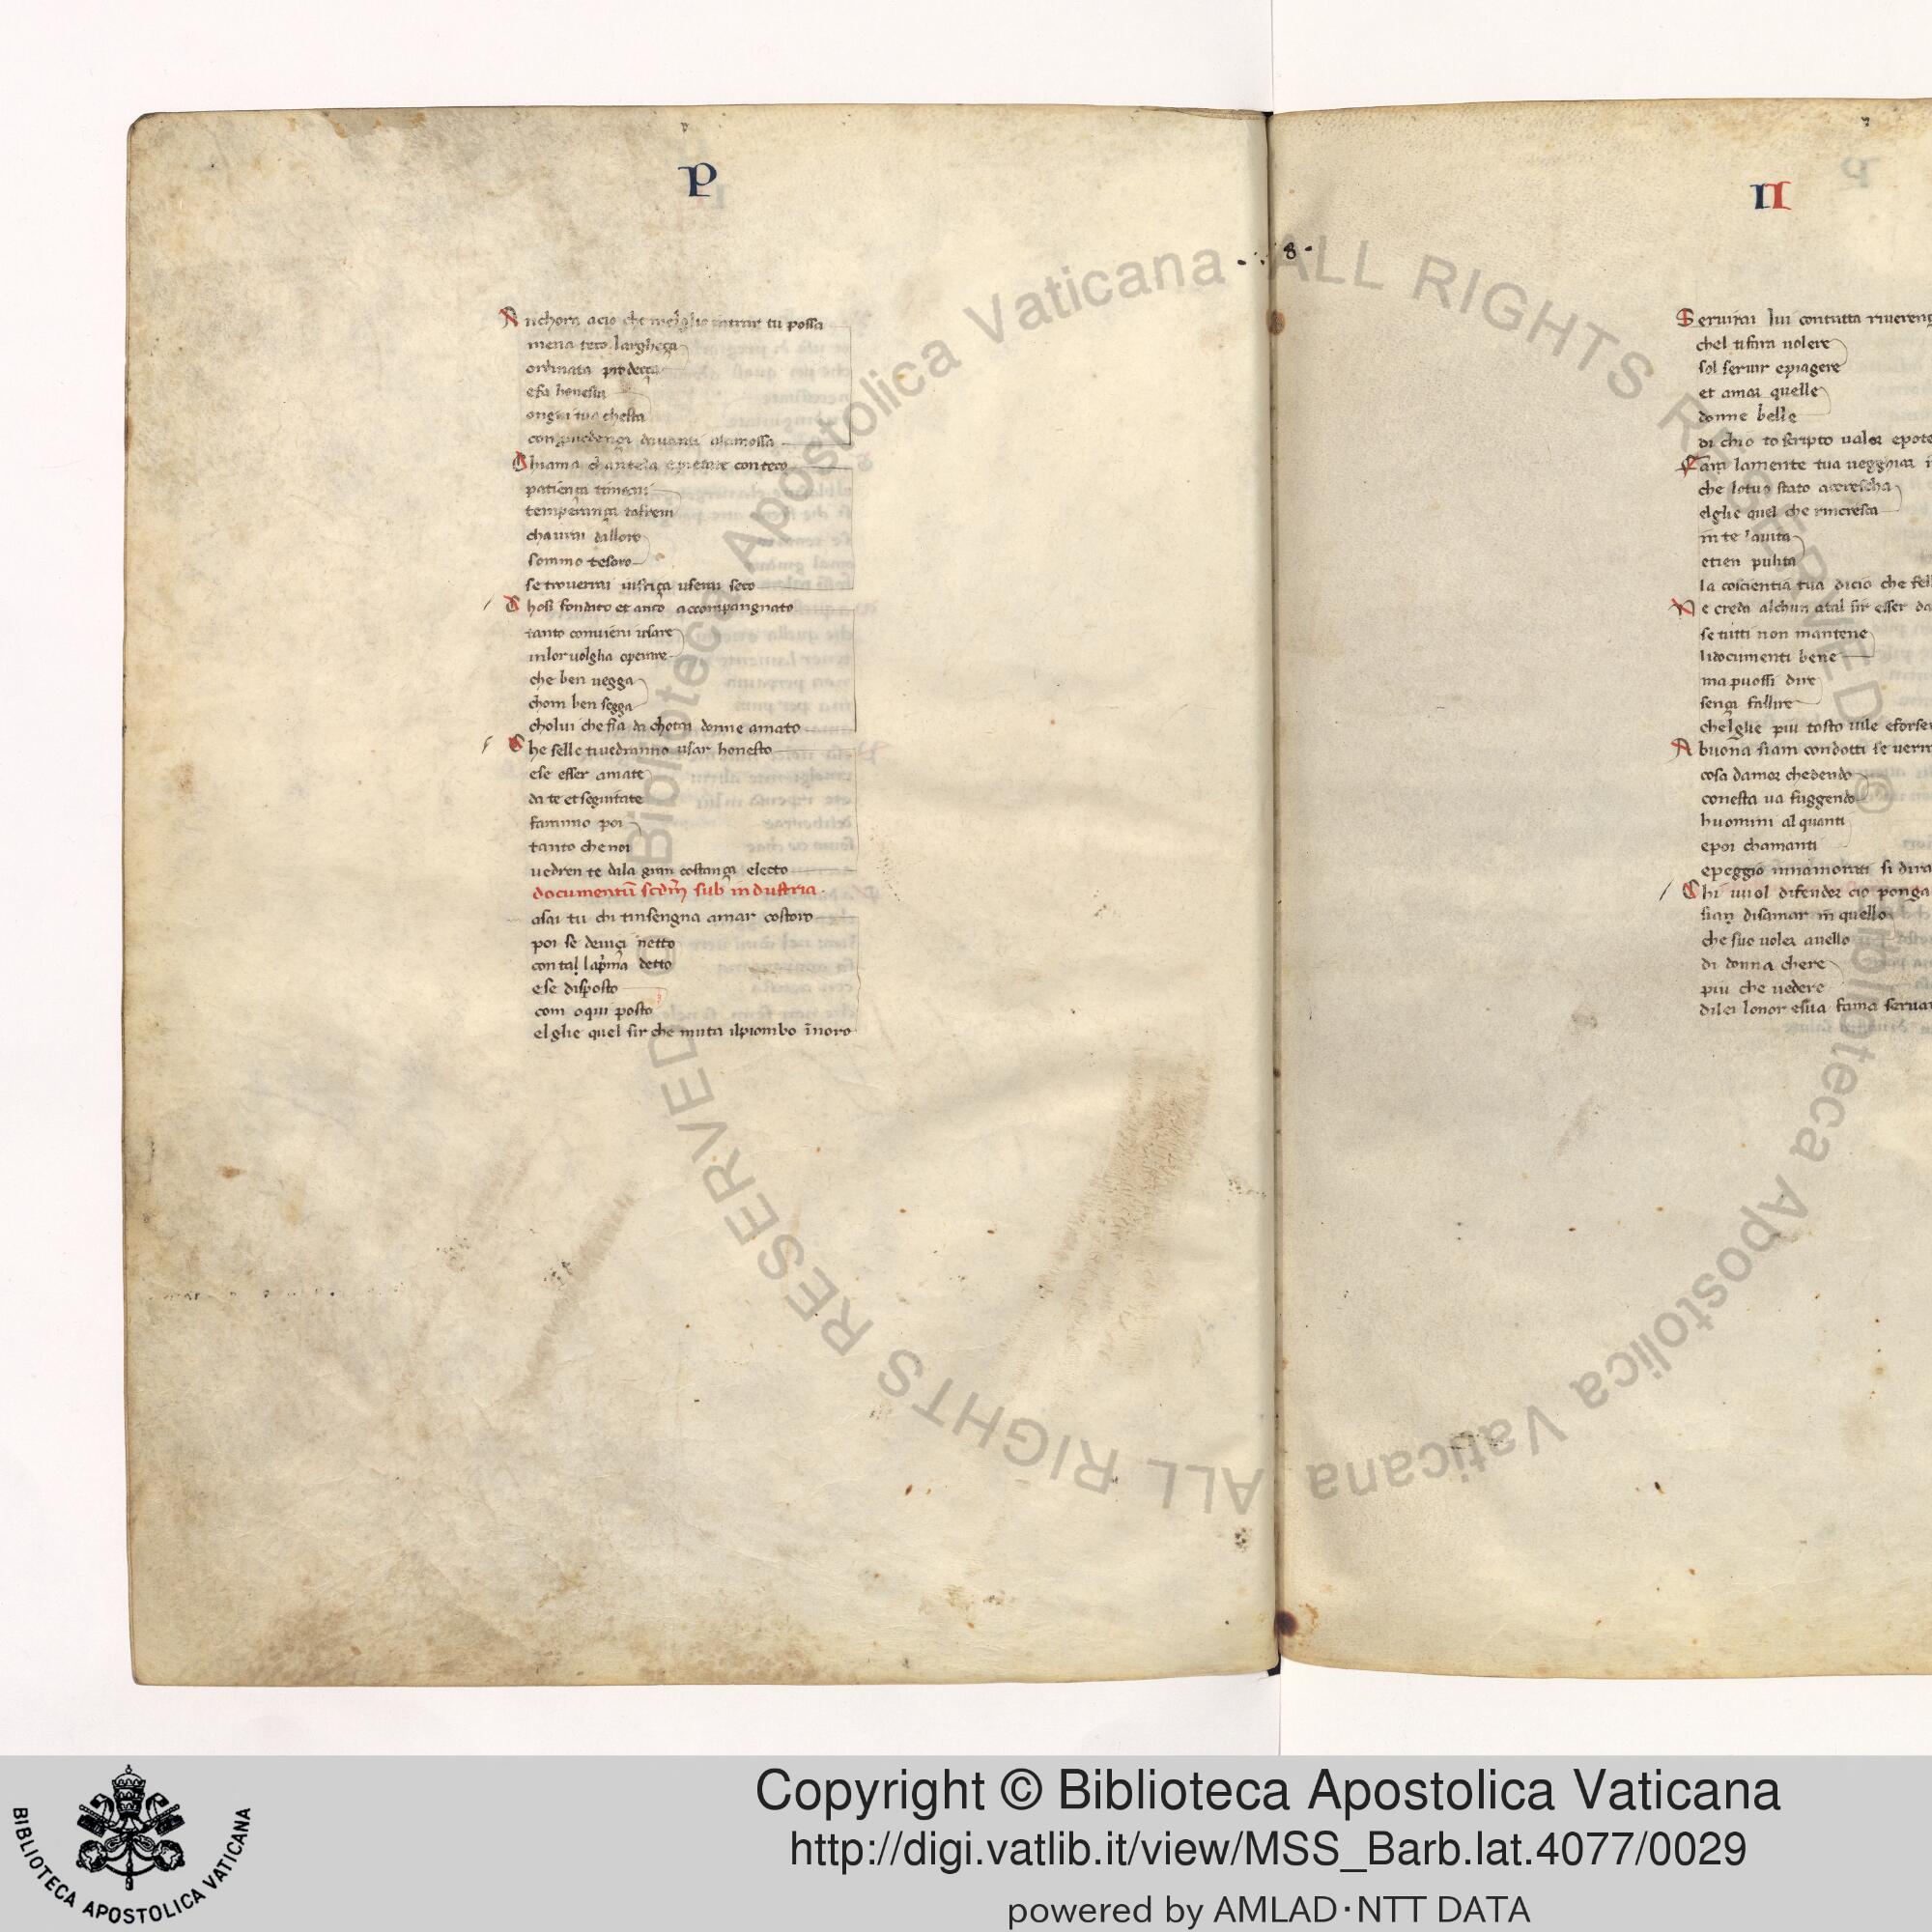 P
Anchora acio che meglio intrar tu possa
mena teco largheça
ordinata prodeça
efa honesta
con prudença davanti alamossa
Chiama chautela epietate con teco
patiença
temperança tafreni
chavrai dalloro
sommo tesoro
se troverrai iusticia userai seco
Chosi fondato et anco accompangnato
tanto convieni usare
inlor volglia operare
che ben uegga
chom ben segga
cholui che fia da chotai donne amato
Che selle tivedranno usar honesto
ese esser amate
da te et seguitate
faranno poi
tanto che noi
vedren te dila gran costança electo
documentũ scdm̃ sub industria
asai tu chi tinsengna amar costoro
poi se deuiçi netto
con tal lapr̃ma detto
ese disposto
com o qui posto
elglie quel sir che muta ilpiombo ĩnoro
8
II
Servirai lui contutta riverenç
chel tifara volere
sol servir epiagere
et amar quelle
donne belle
di chio to scripto valor epote
Fara lamente tua veggiar i
che lotuo stato accrescha
elglie quel che rincresca
in te lavita
etien pulita
la coscientia tua dicio che fel
Ne creda alchun atal sir esser da
se tutti non mantene
lidocumenti bene
ma puossi dire
sença fallire
chelglie piu tosto vile eforse
A buona siam condotti se verra
cosa damor chedendo
conesta va fuggendo
huomini alquanti
epoi chamanti
epeggio innamorati si dira
Chi vuol difender cio ponga
sian disamar in quello
che suo voler avello
di donna chere
piu che vedere
dilei lonor esua fama servar
Biblioteca Apostolica Vaticana ALL RIGHTS RESERVED © Biblioteca Apostolica Vaticana ALL RIGHTS RESERVED ©
BIBLIOTECA APOSTOLICA VATICANA
Copyright © Biblioteca Apostolica Vaticana
http://digi.vatlib.it/view/MSS_Barb.lat.4077/0029
powered by AMLAD·NTT DATA